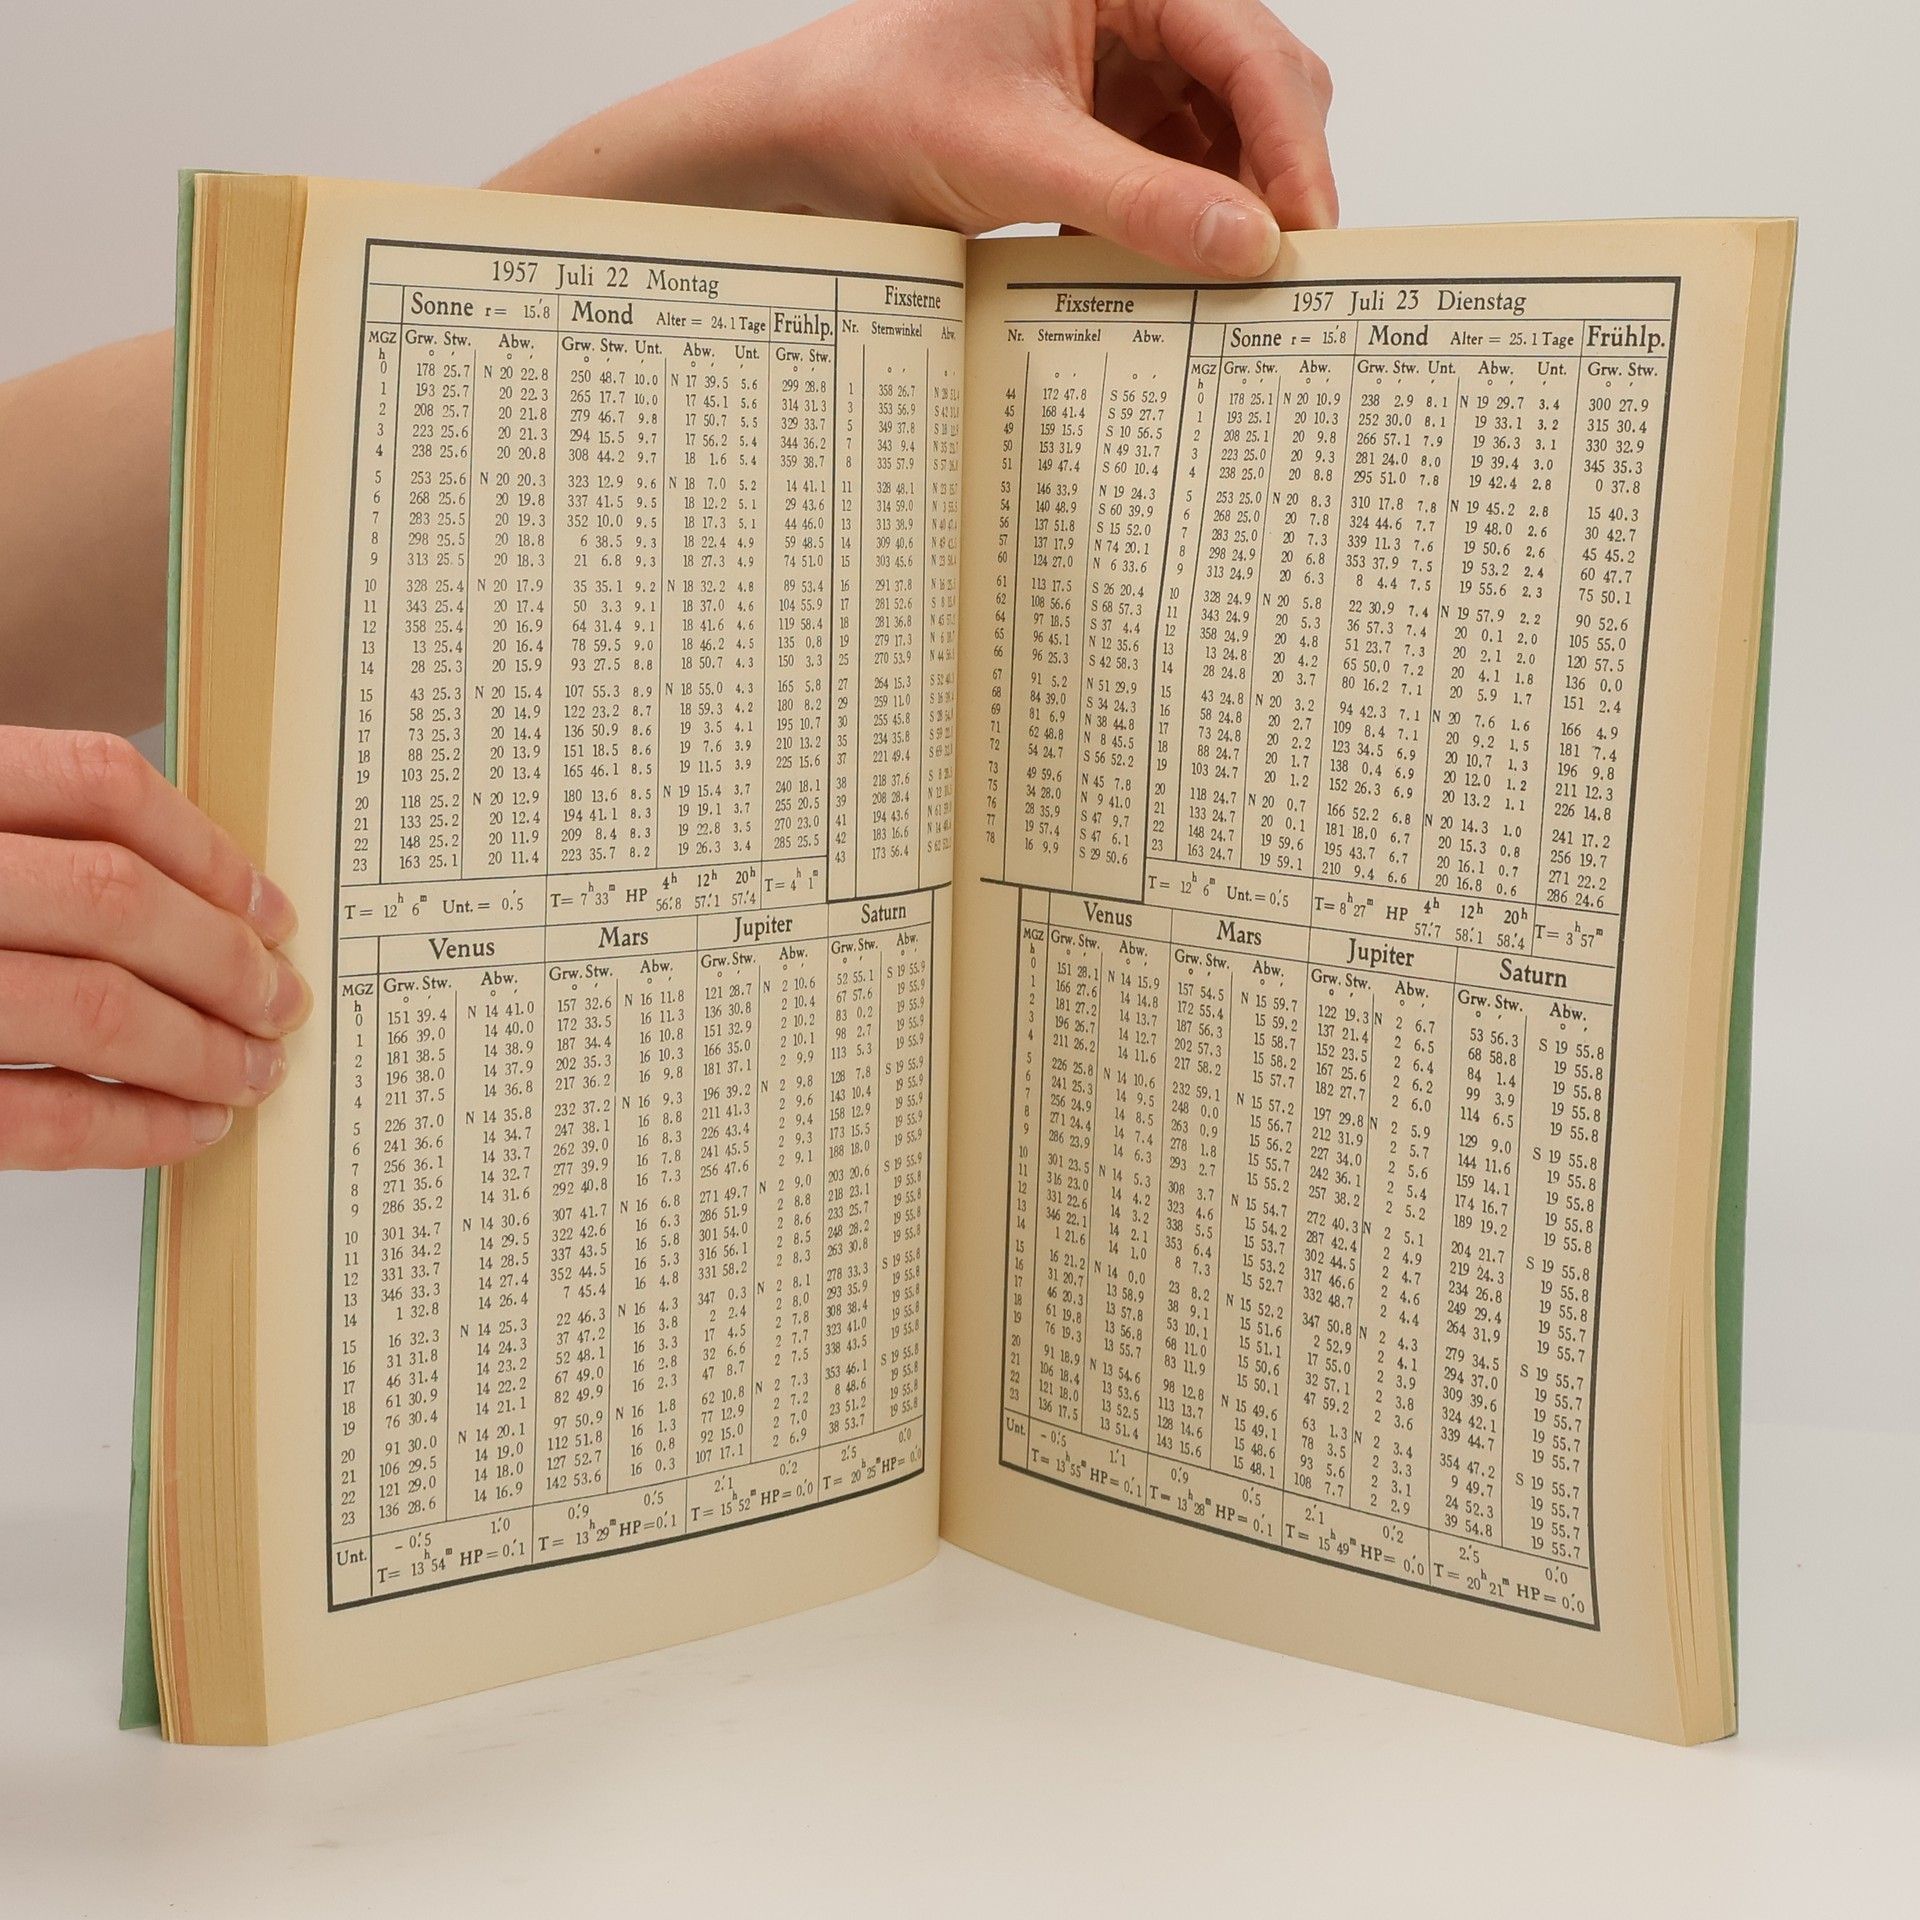 1957 Juli 22 Montag
Fixsterne
Sonne r = 15.'8 Mond Alter = 24.1 Tage Frühlp. Nr. Sternwinkel Abw.
MGZ Grw. Stw. Abw. Grw. Stw. Unt. Abw. Unt. Grw. Stw.
h ° ' ° ' ° ' ' ° ' ' ° ' ° '
0 178 25.7 N 20 22.8 250 48.7 10.0 N 17 39.5 5.6 299 28.8
1 193 25.7 20 22.3 265 17.7 10.0 17 45.1 5.6 314 31.3
2 208 25.7 20 21.8 279 46.7 9.8 17 50.7 5.5 329 33.7
3 223 25.6 20 21.3 294 15.5 9.7 17 56.2 5.4 344 36.2
4 238 25.6 20 20.8 308 44.2 9.7 18 1.6 5.4 359 38.7
5 253 25.6 N 20 20.3 323 12.9 9.6 N 18 7.0 5.2 14 41.1
6 268 25.6 20 19.8 337 41.5 9.5 18 12.2 5.1 29 43.6
7 283 25.5 20 19.3 352 10.0 9.5 18 17.3 5.1 44 46.0
8 298 25.5 20 18.8 6 38.5 9.3 18 22.4 4.9 59 48.5
9 313 25.5 20 18.3 21 6.8 9.3 18 27.3 4.9 74 51.0
10 328 25.4 N 20 17.9 35 35.1 9.2 N 18 32.2 4.8 89 53.4
11 343 25.4 20 17.4 50 3.3 9.1 18 37.0 4.6 104 55.9
12 358 25.4 20 16.9 64 31.4 9.1 18 41.6 4.6 119 58.4
13 13 25.4 20 16.4 78 59.5 9.0 18 46.2 4.5 135 0.8
14 28 25.3 20 15.9 93 27.5 8.8 18 50.7 4.3 150 3.3
15 43 25.3 N 20 15.4 107 55.3 8.9 N 18 55.0 4.3 165 5.8
16 58 25.3 20 14.9 122 23.2 8.7 18 59.3 4.2 180 8.2
17 73 25.3 20 14.4 136 50.9 8.6 19 3.5 4.1 195 10.7
18 88 25.2 20 13.9 151 18.5 8.6 19 7.6 3.9 210 13.2
19 103 25.2 20 13.4 165 46.1 8.5 19 11.5 3.9 225 15.6
20 118 25.2 N 20 12.9 180 13.6 8.5 N 19 15.4 3.7 240 18.1
21 133 25.2 20 12.4 194 41.1 8.3 19 19.1 3.7 255 20.5
22 148 25.2 20 11.9 209 8.4 8.3 19 22.8 3.5 270 23.0
23 163 25.1 20 11.4 223 35.7 8.2 19 26.3 3.4 285 25.5
T = 12h 6m Unt. = 0.'5 T = 7h 33m HP 4h 12h 20h T = 4h 1m
56.'8 57.'1 57.'4
1 358 26.7
3 353 56.9
5 349 37.8
7 343 9.4
8 335 57.9
11 328 48.1
12 314 59.0
13 313 38.9
14 309 40.6
15 303 45.6
16 291 37.8
17 281 52.6
18 281 36.8
19 279 17.3
25 270 53.9
27 264 15.3
29 259 11.0
30 255 45.8
35 234 35.8
37 221 49.4
38 218 37.6
39 208 28.4
41 194 43.6
42 183 16.6
43 173 56.4
Venus Mars Jupiter Saturn
MGZ Grw. Stw. Abw. Grw. Stw. Abw. Grw. Stw. Abw. Grw. Stw. Abw.
h ° ' ° ' ° ' ° ' ° ' ° '
0 151 39.4 N 14 41.0 157 32.6 N 16 11.8 121 28.7 N 2 10.6 52 55.1 S 19 55.9
1 166 39.0 14 40.0 172 33.5 16 11.3 136 30.8 2 10.4 67 57.6 19 55.9
2 181 38.5 14 38.9 187 34.4 16 10.8 151 32.9 2 10.2 83 0.2 19 55.9
3 196 38.0 14 37.9 202 35.3 16 10.3 166 35.0 2 10.1 98 2.7 19 55.9
4 211 37.5 14 36.8 217 36.2 16 9.8 181 37.1 2 9.9 113 5.3 19 55.9
5 226 37.0 N 14 35.8 232 37.2 N 16 9.3 196 39.2 N 2 9.8 128 7.8 S 19 55.9
6 241 36.6 14 34.7 247 38.1 16 8.8 211 41.3 2 9.6 143 10.4 19 55.9
7 256 36.1 14 33.7 262 39.0 16 8.3 226 43.4 2 9.4 158 12.9 19 55.9
8 271 35.6 14 32.7 277 39.9 16 7.8 241 45.5 2 9.3 173 15.5 19 55.9
9 286 35.2 14 31.6 292 40.8 16 7.3 256 47.6 2 9.1 188 18.0 19 55.9
10 301 34.7 N 14 30.6 307 41.7 N 16 6.8 271 49.7 N 2 9.0 203 20.6 S 19 55.9
11 316 34.2 14 29.5 322 42.6 16 6.3 286 51.9 2 8.8 218 23.1 19 55.8
12 331 33.7 14 28.5 337 43.5 16 5.8 301 54.0 2 8.6 233 25.7 19 55.8
13 346 33.3 14 27.4 352 44.5 16 5.3 316 56.1 2 8.5 248 28.2 19 55.8
14 1 32.8 14 26.4 7 45.4 16 4.8 331 58.2 2 8.3 263 30.8 19 55.8
15 16 32.3 N 14 25.3 22 46.3 N 16 4.3 347 0.3 N 2 8.1 278 33.3 S 19 55.8
16 31 31.8 14 24.3 37 47.2 16 3.8 2 2.4 2 8.0 293 35.9 19 55.8
17 46 31.4 14 23.2 52 48.1 16 3.3 17 4.5 2 7.8 308 38.4 19 55.8
18 61 30.9 14 22.2 67 49.0 16 2.8 32 6.6 2 7.7 323 41.0 19 55.8
19 76 30.4 14 21.1 82 49.9 16 2.3 47 8.7 2 7.5 338 43.5 19 55.8
20 91 30.0 N 14 20.1 97 50.9 N 16 1.8 62 10.8 N 2 7.3 353 46.1 S 19 55.8
21 106 29.5 14 19.0 112 51.8 16 1.3 77 12.9 2 7.2 8 48.6 19 55.8
22 121 29.0 14 18.0 127 52.7 16 0.8 92 15.0 2 7.0 23 51.2 19 55.8
23 136 28.6 14 16.9 142 53.6 16 0.3 107 17.1 2 6.9 38 53.7 19 55.8
Unt. - 0.'5 1.'0 0.'9 0.'5 2.'1 0.'2 2.'5 0.'0
T = 13h 54m HP = 0.'1 T = 13h 29m HP = 0.'1 T = 15h 52m HP = 0.'0 T = 20h 25m HP = 0.'0
Fixsterne
Nr. Sternwinkel Abw.
° ' ° '
44 172 47.8 S 56 52.9
45 168 41.4 S 59 27.7
49 159 15.5 S 10 56.5
50 153 31.9 N 49 31.7
51 149 47.4 S 60 10.4
53 146 33.9 N 19 24.3
54 140 48.9 S 60 39.9
56 137 51.8 S 15 52.0
57 137 17.9 N 74 20.1
60 124 27.0 N 6 33.6
61 113 17.5 S 26 20.4
62 108 56.6 S 68 57.3
64 97 18.5 S 37 4.4
65 96 45.1 N 12 35.6
66 96 25.3 S 42 58.3
67 91 5.2 N 51 29.9
68 84 39.0 S 34 24.3
69 81 6.9 N 38 44.8
71 62 48.8 N 8 45.5
72 54 24.7 S 56 52.2
73 49 59.6 N 45 7.8
75 34 28.0 N 9 41.0
76 28 35.9 S 47 9.7
77 19 57.4 S 47 6.1
78 16 9.9 S 29 50.6
1957 Juli 23 Dienstag
Sonne r = 15.'8 Mond Alter = 25.1 Tage Frühlp.
MGZ Grw. Stw. Abw. Grw. Stw. Unt. Abw. Unt. Grw. Stw.
h ° ' ° ' ° ' ' ° ' ' ° '
0 178 25.1 N 20 10.9 238 2.9 8.1 N 19 29.7 3.4 300 27.9
1 193 25.1 20 10.3 252 30.0 8.1 19 33.1 3.2 315 30.4
2 208 25.1 20 9.8 266 57.1 7.9 19 36.3 3.1 330 32.9
3 223 25.0 20 9.3 281 24.0 8.0 19 39.4 3.0 345 35.3
4 238 25.0 20 8.8 295 51.0 7.8 19 42.4 2.8 0 37.8
5 253 25.0 N 20 8.3 310 17.8 7.8 N 19 45.2 2.8 15 40.3
6 268 25.0 20 7.8 324 44.6 7.7 19 48.0 2.6 30 42.7
7 283 25.0 20 7.3 339 11.3 7.6 19 50.6 2.6 45 45.2
8 298 24.9 20 6.8 353 37.9 7.5 19 53.2 2.4 60 47.7
9 313 24.9 20 6.3 8 4.4 7.5 19 55.6 2.3 75 50.1
10 328 24.9 N 20 5.8 22 30.9 7.4 N 19 57.9 2.2 90 52.6
11 343 24.9 20 5.3 36 57.3 7.4 20 0.1 2.0 105 55.0
12 358 24.9 20 4.8 51 23.7 7.3 20 2.1 2.0 120 57.5
13 13 24.8 20 4.2 65 50.0 7.2 20 4.1 1.8 136 0.0
14 28 24.8 20 3.7 80 16.2 7.1 20 5.9 1.7 151 2.4
15 43 24.8 N 20 3.2 94 42.3 7.1 N 20 7.6 1.6 166 4.9
16 58 24.8 20 2.7 109 8.4 7.1 20 9.2 1.5 181 7.4
17 73 24.8 20 2.2 123 34.5 6.9 20 10.7 1.3 196 9.8
18 88 24.7 20 1.7 138 0.4 6.9 20 12.0 1.2 211 12.3
19 103 24.7 20 1.2 152 26.3 6.9 20 13.2 1.1 226 14.8
20 118 24.7 N 20 0.7 166 52.2 6.8 N 20 14.3 1.0 241 17.2
21 133 24.7 20 0.1 181 18.0 6.7 20 15.3 0.8 256 19.7
22 148 24.7 19 59.6 195 43.7 6.7 20 16.1 0.7 271 22.2
23 163 24.7 19 59.1 210 9.4 6.6 20 16.8 0.6 286 24.6
T = 12h 6m Unt. = 0.'5 T = 8h 27m HP 4h 12h 20h T = 3h 57m
57.'7 58.'1 58.'4
Venus Mars Jupiter Saturn
MGZ Grw. Stw. Abw. Grw. Stw. Abw. Grw. Stw. Abw. Grw. Stw. Abw.
h ° ' ° ' ° ' ° ' ° ' ° '
0 151 28.1 N 14 15.9 157 54.5 N 15 59.7 122 19.3 N 2 6.7 53 56.3 S 19 55.8
1 166 27.6 14 14.8 172 55.4 15 59.2 137 21.4 2 6.5 68 58.8 19 55.8
2 181 27.2 14 13.7 187 56.3 15 58.7 152 23.5 2 6.4 84 1.4 19 55.8
3 196 26.7 14 12.7 202 57.3 15 58.2 167 25.6 2 6.2 99 3.9 19 55.8
4 211 26.2 14 11.6 217 58.2 15 57.7 182 27.7 2 6.0 114 6.5 19 55.8
5 226 25.8 N 14 10.6 232 59.1 N 15 57.2 197 29.8 N 2 5.9 129 9.0 S 19 55.8
6 241 25.3 14 9.5 248 0.0 15 56.7 212 31.9 2 5.7 144 11.6 19 55.8
7 256 24.9 14 8.5 263 0.9 15 56.2 227 34.0 2 5.6 159 14.1 19 55.8
8 271 24.4 14 7.4 278 1.8 15 55.7 242 36.1 2 5.4 174 16.7 19 55.8
9 286 23.9 14 6.3 293 2.7 15 55.2 257 38.2 2 5.2 189 19.2 19 55.8
10 301 23.5 N 14 5.3 308 3.7 N 15 54.7 272 40.3 N 2 5.1 204 21.7 S 19 55.8
11 316 23.0 14 4.2 323 4.6 15 54.2 287 42.4 2 4.9 219 24.3 19 55.8
12 331 22.6 14 3.2 338 5.5 15 53.7 302 44.5 2 4.7 234 26.8 19 55.8
13 346 22.1 14 2.1 353 6.4 15 53.2 317 46.6 2 4.6 249 29.4 19 55.7
14 1 21.6 14 1.0 8 7.3 15 52.7 332 48.7 2 4.4 264 31.9 19 55.7
15 16 21.2 N 14 0.0 23 8.2 N 15 52.2 347 50.8 N 2 4.3 279 34.5 S 19 55.7
16 31 20.7 13 58.9 38 9.1 15 51.6 2 52.9 2 4.1 294 37.0 19 55.7
17 46 20.3 13 57.8 53 10.1 15 51.1 17 55.0 2 3.9 309 39.6 19 55.7
18 61 19.8 13 56.8 68 11.0 15 50.6 32 57.1 2 3.8 324 42.1 19 55.7
19 76 19.3 13 55.7 83 11.9 15 50.1 47 59.2 2 3.6 339 44.7 19 55.7
20 91 18.9 N 13 54.6 98 12.8 N 15 49.6 63 1.3 N 2 3.4 354 47.2 S 19 55.7
21 106 18.4 13 53.6 113 13.7 15 49.1 78 3.5 2 3.3 9 49.7 19 55.7
22 121 18.0 13 52.5 128 14.6 15 48.6 93 5.6 2 3.1 24 52.3 19 55.7
23 136 17.5 13 51.4 143 15.6 15 48.1 108 7.7 2 2.9 39 54.8 19 55.7
Unt. - 0.'5 1.'1 0.'9 0.'5 2.'1 0.'2 2.'5 0.'0
T = 13h 55m HP = 0.'1 T = 13h 28m HP = 0.'1 T = 15h 49m HP = 0.'0 T = 20h 21m HP = 0.'0